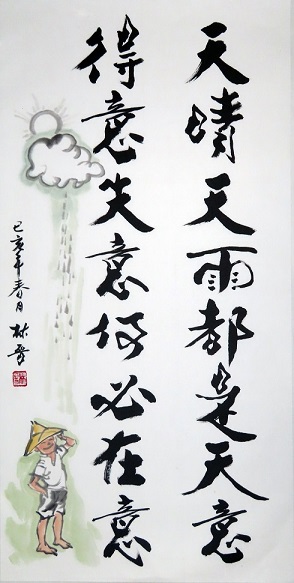 天晴天雨都是天意
得意失意何必在意
己亥年春月